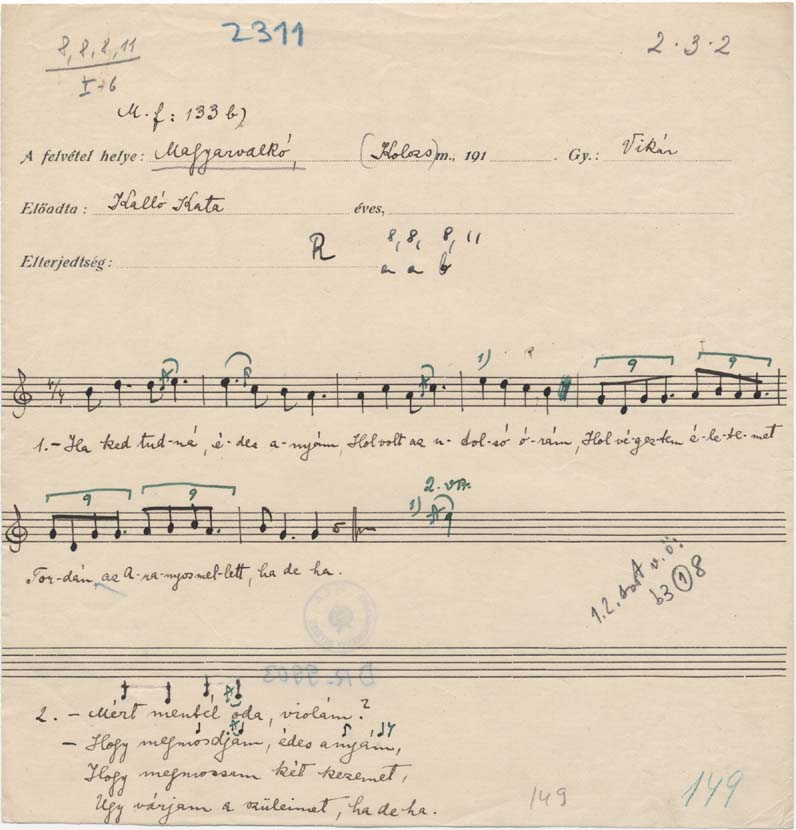 8, 8, 8, 11
2311
2·3·2
I-6
M.f: 133 b)
A felvétel helye: Magyarvalkó, (Kolozs)m., 191 . Gy.: Vikár
Előadta: Kalló Kata éves,
R 8, 8, 8, 11
Elterjedtség: a a b
1)
9 9
4/4
1. – Ha ked tud-ná, é-des a-nyám, Hol volt az u-tol-só ó-rám, Hol vé-gez-tem é-le-te-met
9 9 2. vsz.
1)
Tor-dán, az A-ra-nyos mel-lett, ha de ha.
1. 2. sort v. ö:
b3 ① 8
2. – Mért mentél oda, violám?
– Hogy megmosdjam, édes anyám,
Hogy megmossam két kezemet,
Ugy várjam a szüleimet, ha de ha.
149
149